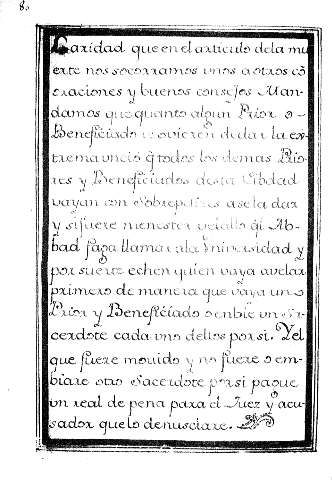 80
Caridad que en el articulo de la mu
erte nos socorramos unos a otros cõ
oraciones y buenos consejos Man-
damos que quanto algun Prior o
Beneficiado se oviere de dar la ex-
trema uncio q̃ todos los demas Prio-
res y Beneficiados desta Cibdad
vayan con Sobrepellizes a se la dar
y si fuere menester velallo q̃ el Ab-
bad faga llamar a la Universidad y
por suerte echen quien vaya a velar
primero de manera que vaya un
Prior y Beneficiado o enbie un Sa-
cerdote cada uno dellos por si. Y el
que fuere movido y no fuere o em-
biare otro Sacerdote por si pague
un real de pena para el Juez y acu-
sador que lo denusciare.